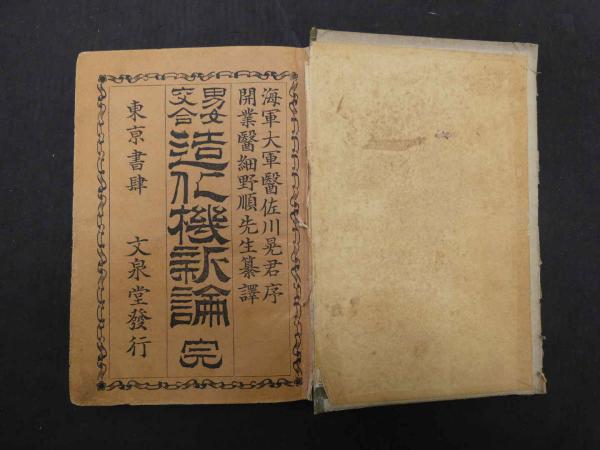 海軍大軍醫佐川晃君序
開業醫細野順先生纂譯
男女交合
造化機新論 完
東京書肆 文泉堂發行